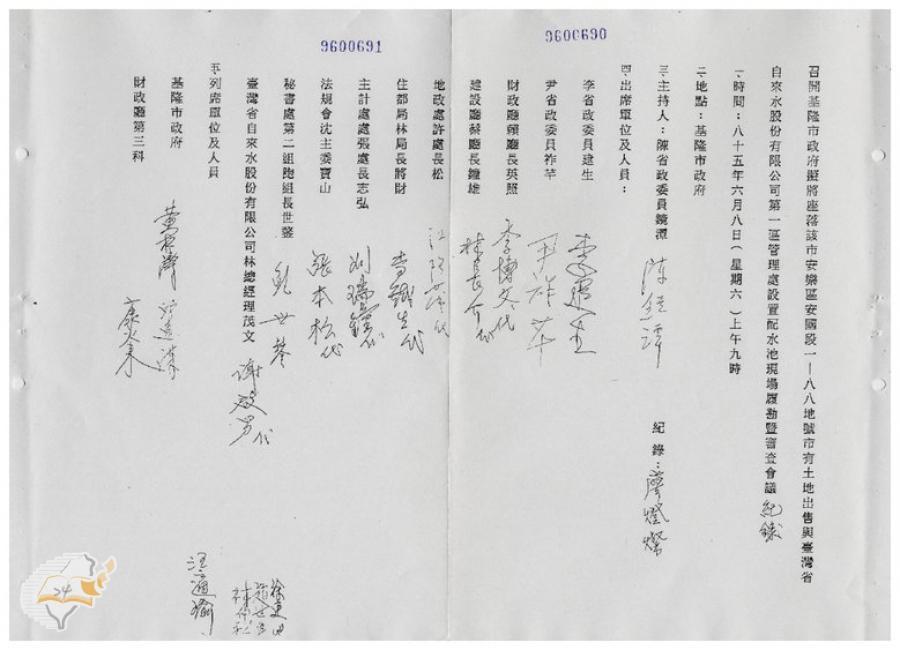 9600690
召開基隆市政府擬將座落該市安樂區安國段一—八八地號市有土地出售與臺灣省
自來水股份有限公司第一區管理處設置配水池現場履勘暨審查會議紀錄
一、時間：八十五年六月八日（星期六）上午九時
二、地點：基隆市政府
三、主持人：陳省政委員鏡潭 陳鏡潭 紀錄：廖燈燦
四、出席單位及人員：
李省政委員建生 李建生
尹省政委員祚芊 尹祚芊
財政廳賴廳長英照 李博文代
建設廳蔡廳長鐘雄 林長介代
9600691
地政處許處長松
住都局林局長將財
主計處處張處長志弘 劉瑞鐘代
法規會沈主委寶山 張本松代
秘書處第二組鮑組長世鏧 鮑世
臺灣省自來水股份有限公司林總經理茂文 謝
五、列席單位及人員
基隆市政府
財政廳第三科
24